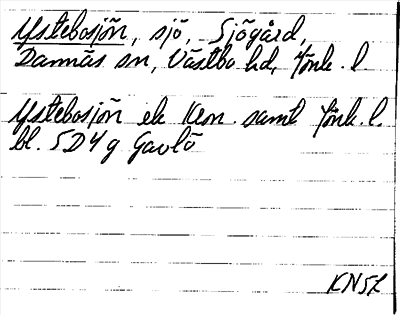 Ystebosjön, sjö, Sjögård,
Dannäs sn, Västbo hd, Jönk. l.
Ystebosjön ek Ken. samt Jönk. l.
bl. 5D4g Gavlö
KNSL